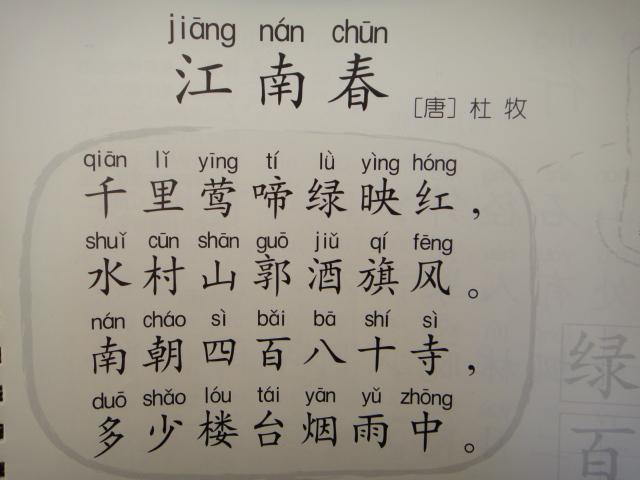 jiāng nán chūn
江南春
[唐] 杜牧
qiān lǐ yīng tí lǜ yìng hóng
千里莺啼绿映红，
shuǐ cūn shān guō jiǔ qí fēng
水村山郭酒旗风。
nán cháo sì bǎi bā shí sì
南朝四百八十寺，
duō shǎo lóu tái yān yǔ zhōng
多少楼台烟雨中。
绿
百